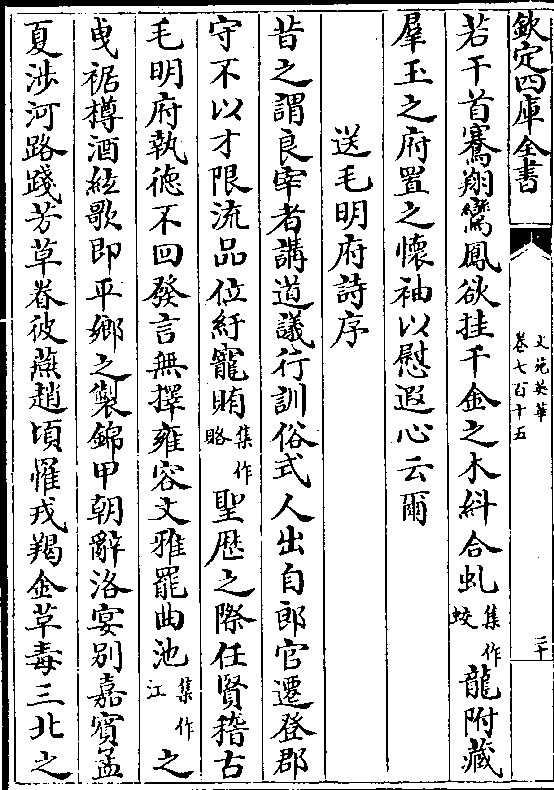 欽定四庫全書
文苑英華
卷七百十五
二十
若干首騫翔鸞鳳欲挂千金之木糾合虬集作蛟龍附藏
羣玉之府置之懷袖以慰遐心云爾
送毛明府詩序
昔之謂良宰者講道議行訓俗式人出自郎官遷登郡
守不以才限流品位紆寵賄集作賂聖歴之際任賢稽古
毛明府執德不回發言無擇雍容文雅罷曲池集作江之
曵裾樽酒絃歌即平鄉之製錦甲朝辭洛宴别嘉賓孟
夏渉河路踐芳草眷彼燕趙頃罹戎羯金草毒三北之